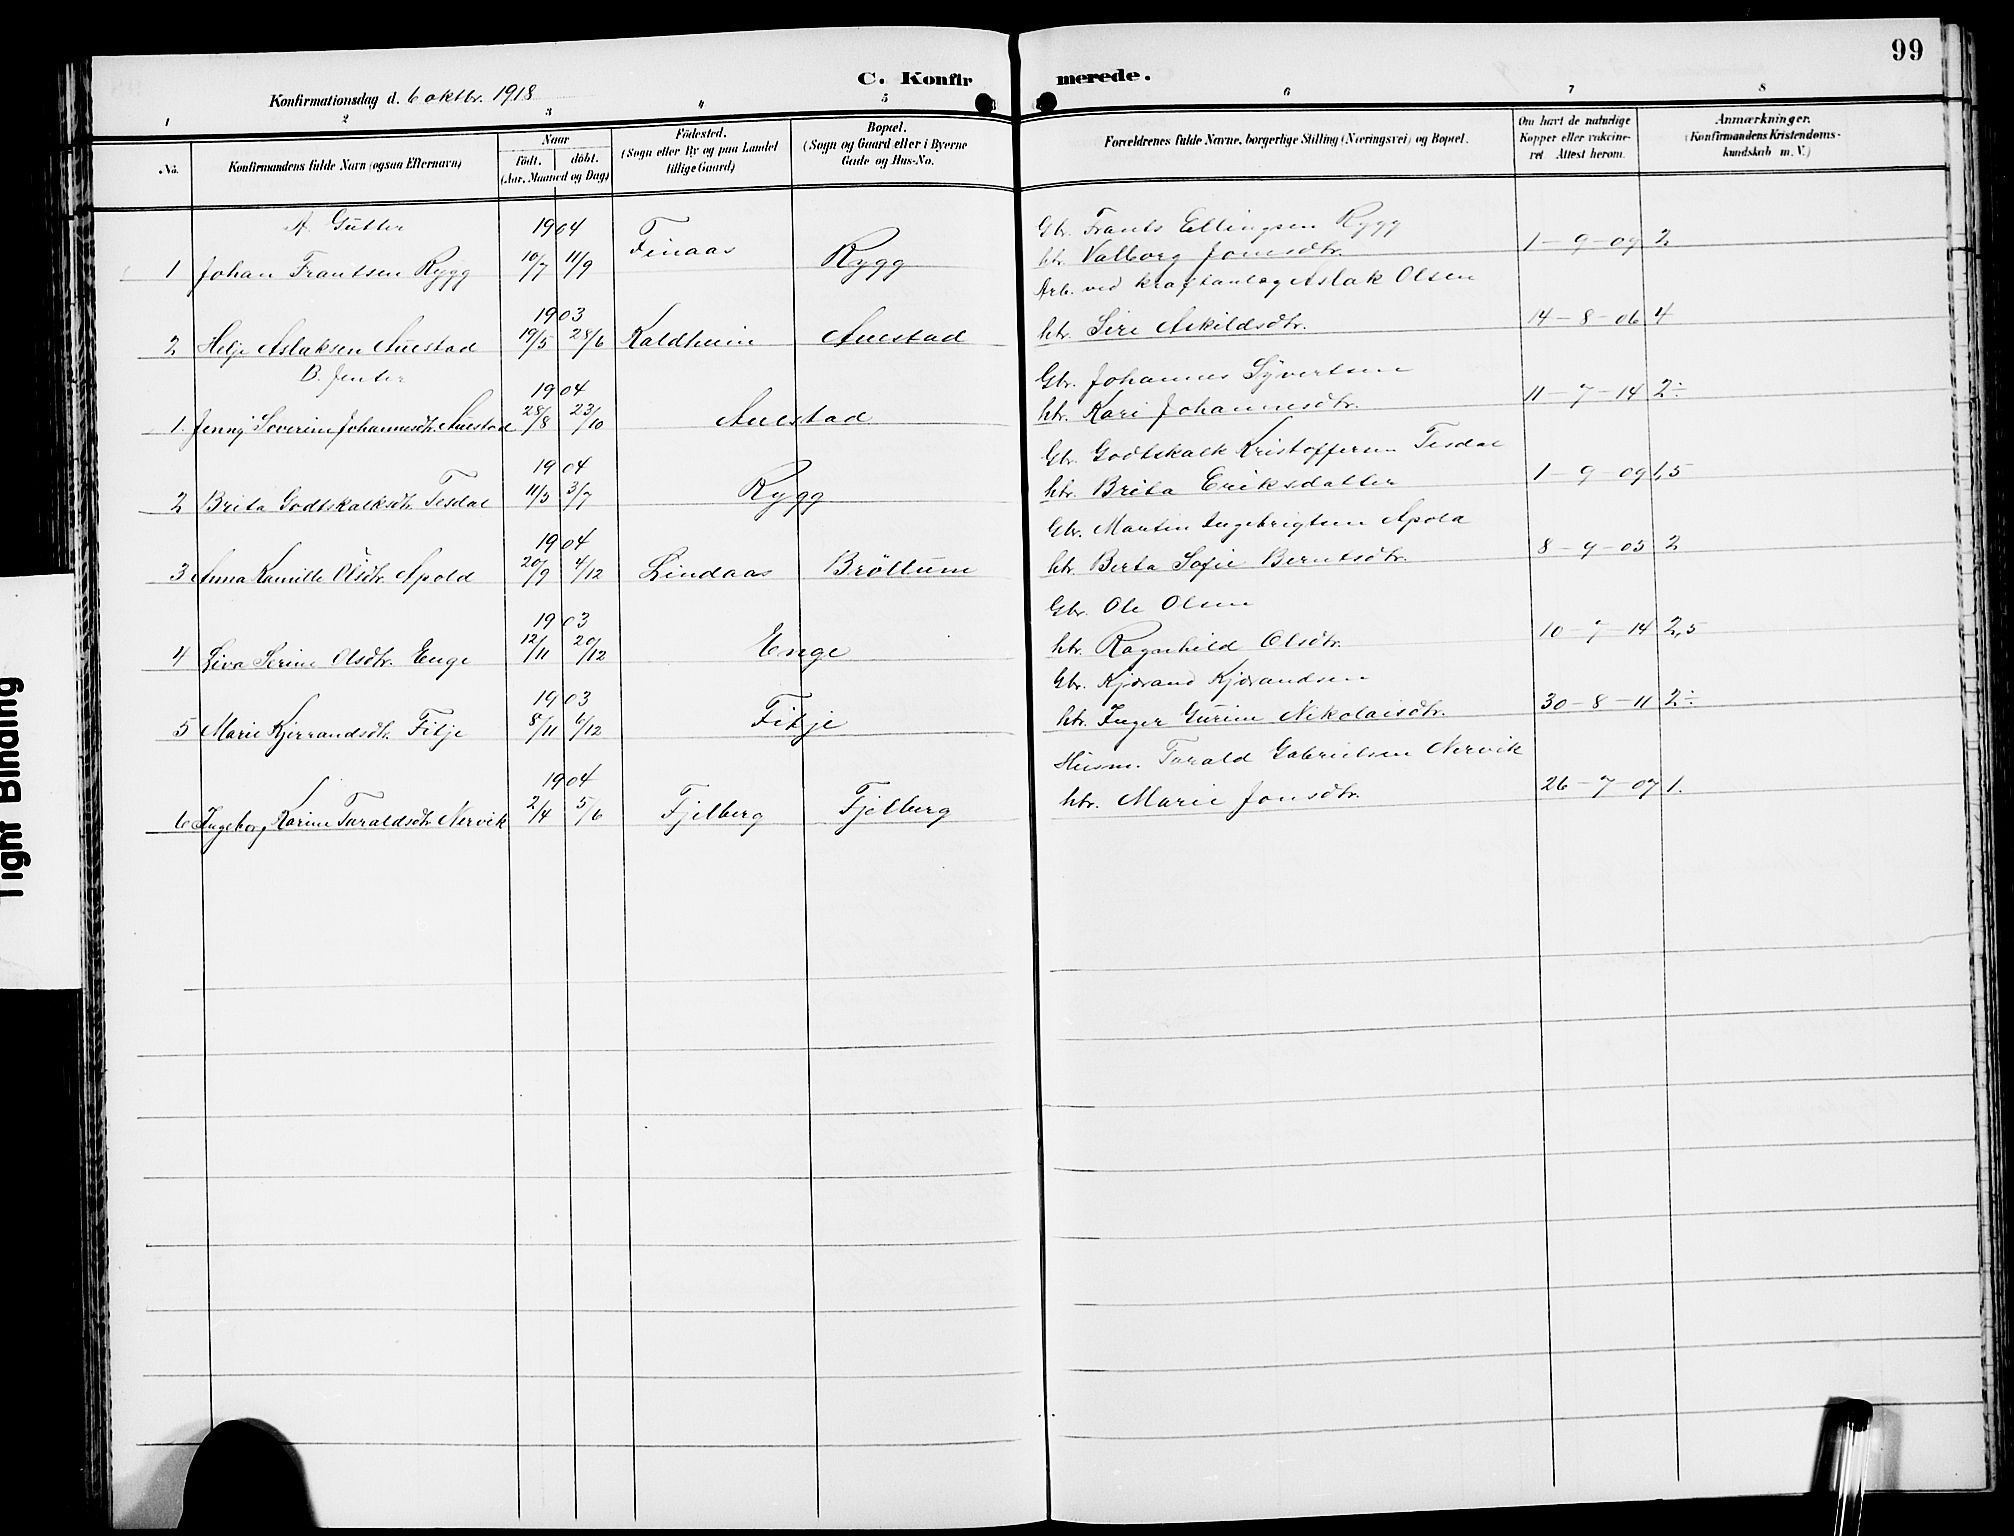 99
C. Konfirmerede.
Konfirmationsdag d. 6 oktbr. 1918
1 2 3 4 5 6 7 8
No.
Konfirmandens fulde Navn (ogsaa Efternavn)
Naar
födt. döbt.
(Aar, Maaned og Dag)
Födested.
(Sogn eller By og paa Landet
tillige Gaard)
Bopæl.
(Sogn og Gaard eller i Byerne
Gade og Hus-No.
Forældrenes fulde Navne, borgerlige Stilling (Næringsvei) og Bopæl.
Om havt de naturlige
Kopper eller vakcine-
ret Attest herom.
Anmærkninger.
(Konfirmandens Kristendoms-
kundskab m. V.)
A. Gutter
1904 Gbr. Frants Ellingsen Rygg
1 Johan Frantsen Rygg 10/7 11/9 Finaas Rygg htr. Valborg Jonsdtr. 1-9-09 2
1903 Arb. ved kraftanlæg Aslak Olsen
2 Helje Aslaksen Auestad 19/5 28/6 Kaldheim Auestad htr. Siri Askildsdtr. 14-8-06 4
B. Jenter
1904 Gbr. Johannes Syvertsen
1. Jenny Severine Johannesdtr. Auestad 28/8 23/10 Auestad htr. Kari Johannesdtr. 11-7-14 2÷
1904 Gbr. Godtskalk Kristoffersen Tesdal
2 Brita Godtskalksdtr. Tesdal 11/5 3/7 Rygg htr. Brita Eriksdatter 1-9-09 1,5
1904 Gbr. Martin Ingebrigtsen Apold
3 Anna Kamille Olsdtr. Apold 20/9 4/12 Lindaas Bröttum htr. Berta Sofie Berntsdtr. 8-9-05 2
1903 Gbr. Ole Olsen
4 Liva Serine Olsdtr. Enge 12/11 20/12 Enge htr. Ragnhild Olsdtr. 10-7-14 2,5
1903 Gbr. Kjærand Kjærandsen
5 Marie Kjerrandsdtr. Fitje 8/11 6/12 Fitje htr. Inger Gurine Nikolaisdtr. 30-8-11 2÷
1904 Husm. Tarald Gabrielsen Nervik
6 Ingeborg Karine Taraldsdtr. Nervik 2/4 5/6 Fjelberg Fjelberg htr. Marie Jonsdtr. 26-7-07 1.
Tight Binding